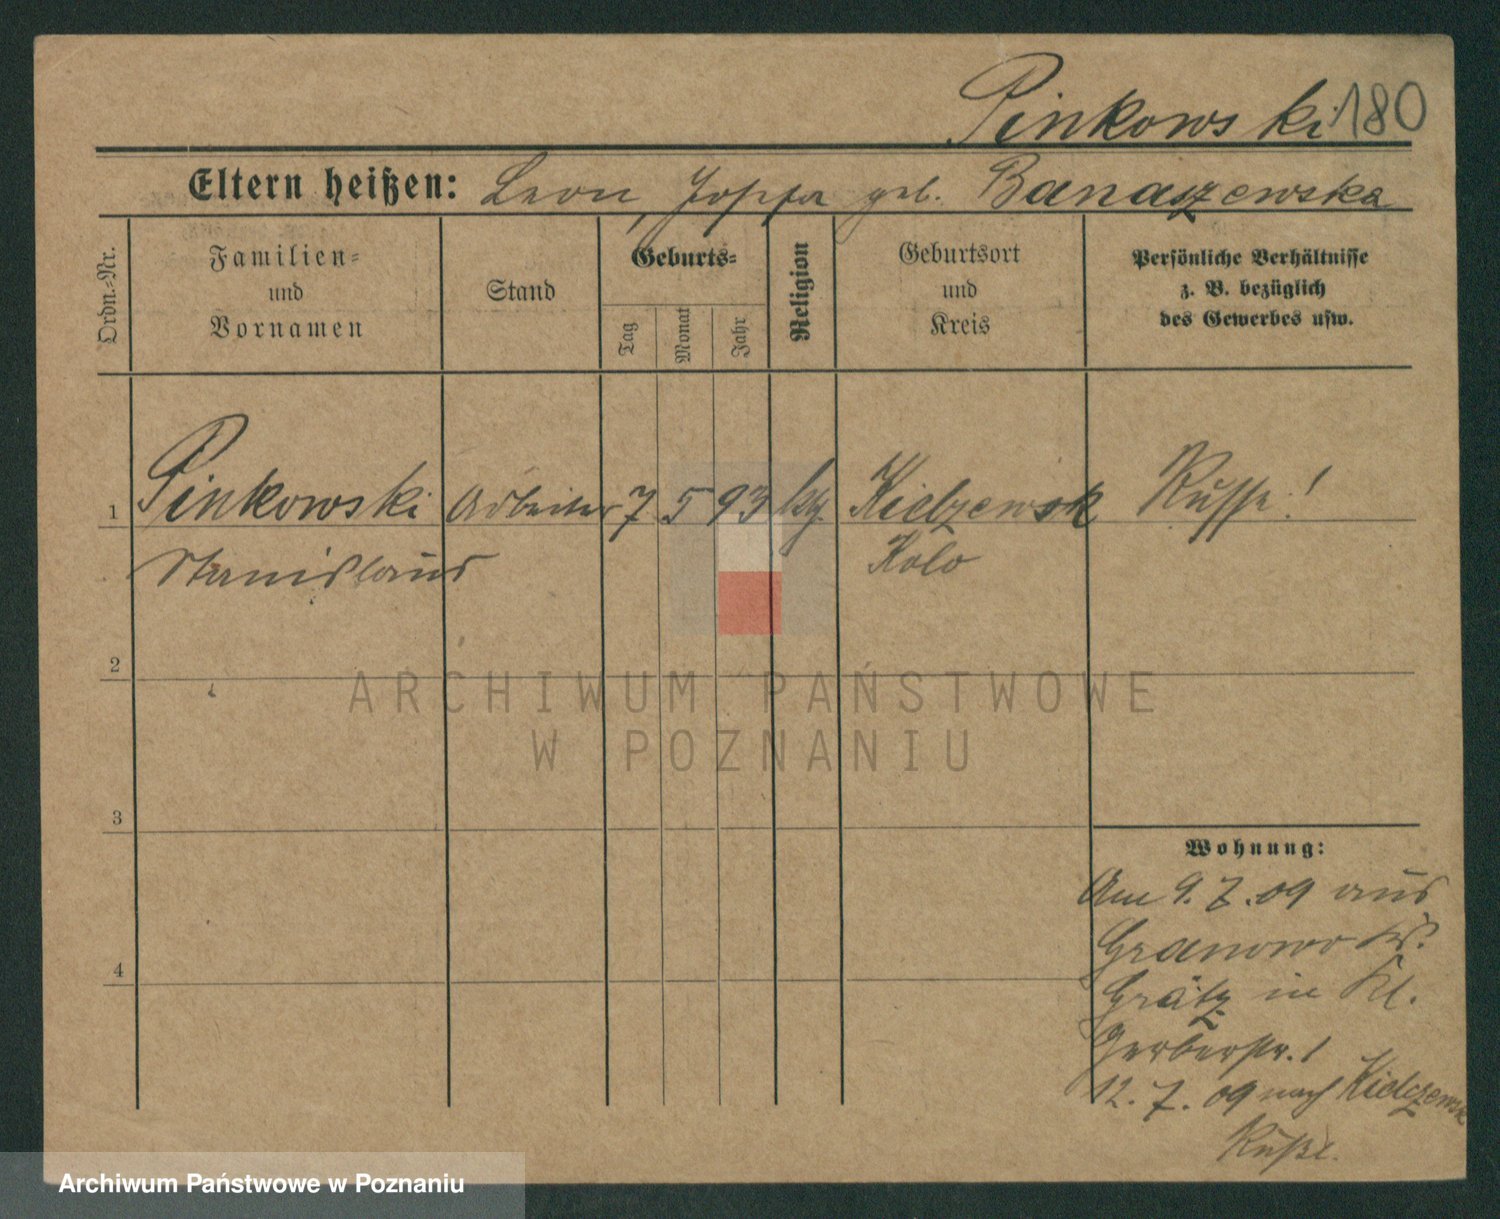 Pinkowski 180
Eltern heißen: Leon, Josefa geb. Banaszewska
Ordn.-Nr.
Familien-
und
Vornamen
Stand
Geburts-
Tag
Monat
Jahr
Religion
Geburtsort
und
Kreis
Persönliche Verhältnisse
z. B. bezüglich
des Gewerbes usw.
1 Pinkowski Arbeiter 7 5 93 Kielzewsk Russe!
Stanislaus Kolo
2
3
4
Wohnung:
Am 9.7.09 aus
Granowo
Grätz in Kl.
Gerberstr. 1
12.7.09 nach Kielczewsk
Rußl.
ARCHIWUM PAŃSTWOWE
W POZNANIU
Archiwum Państwowe w Poznaniu